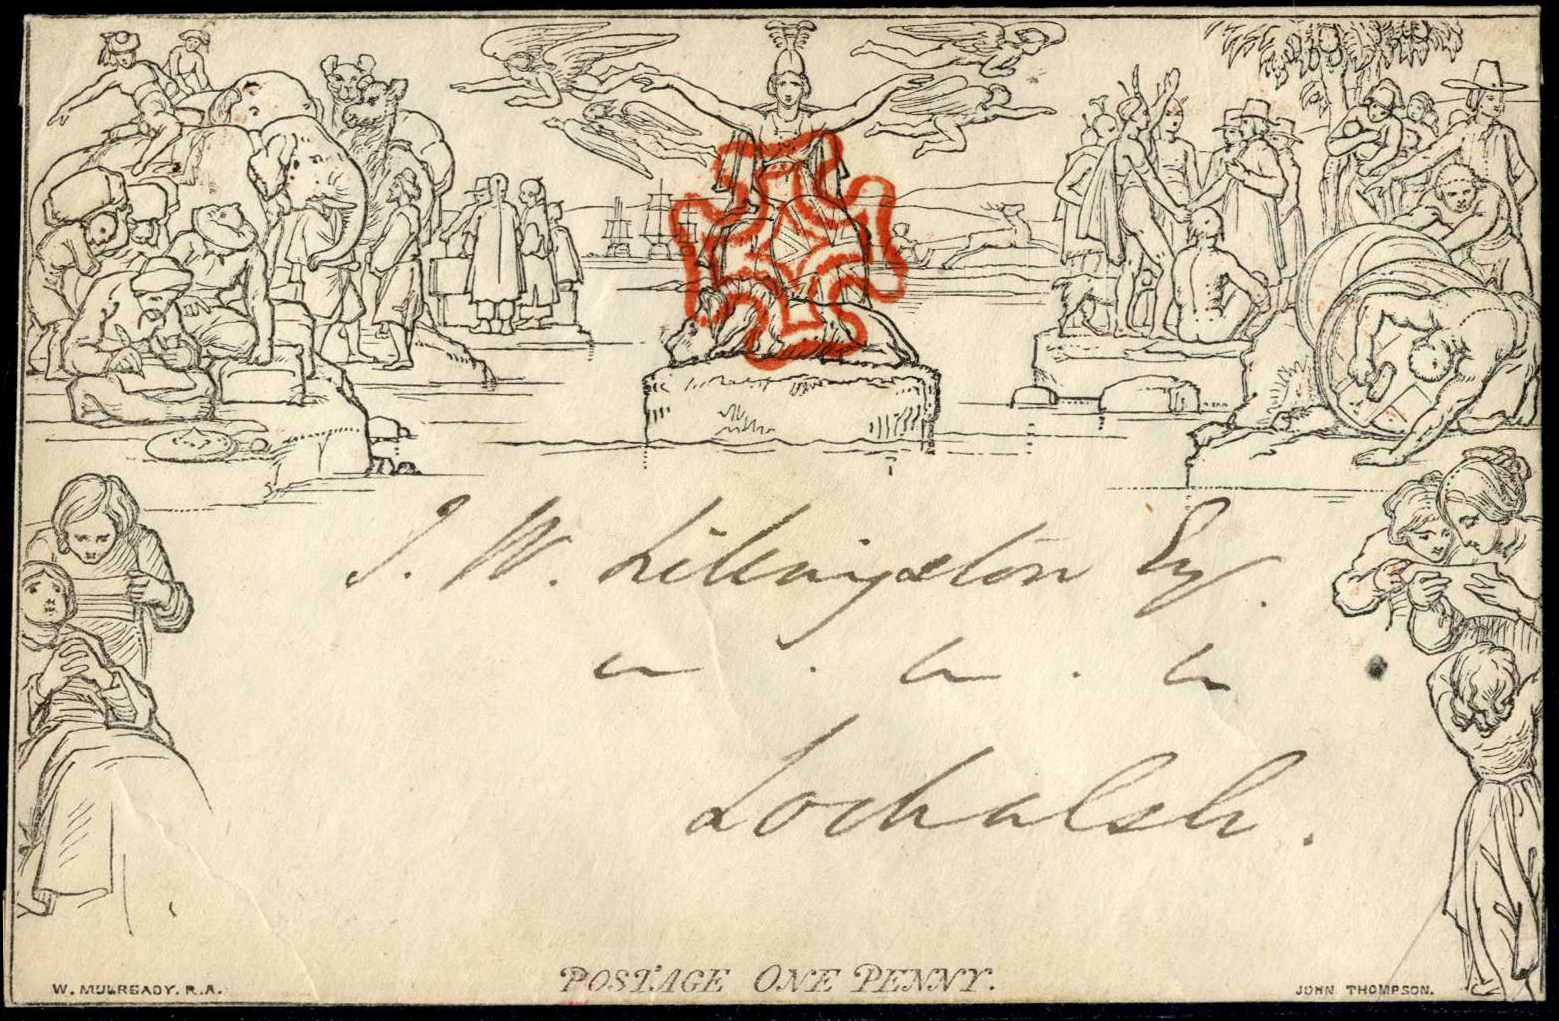 J. W. Lillingston Esq.
Lochalsh.
POSTAGE ONE PENNY.
W. MULREADY. R.A.
JOHN THOMPSON.